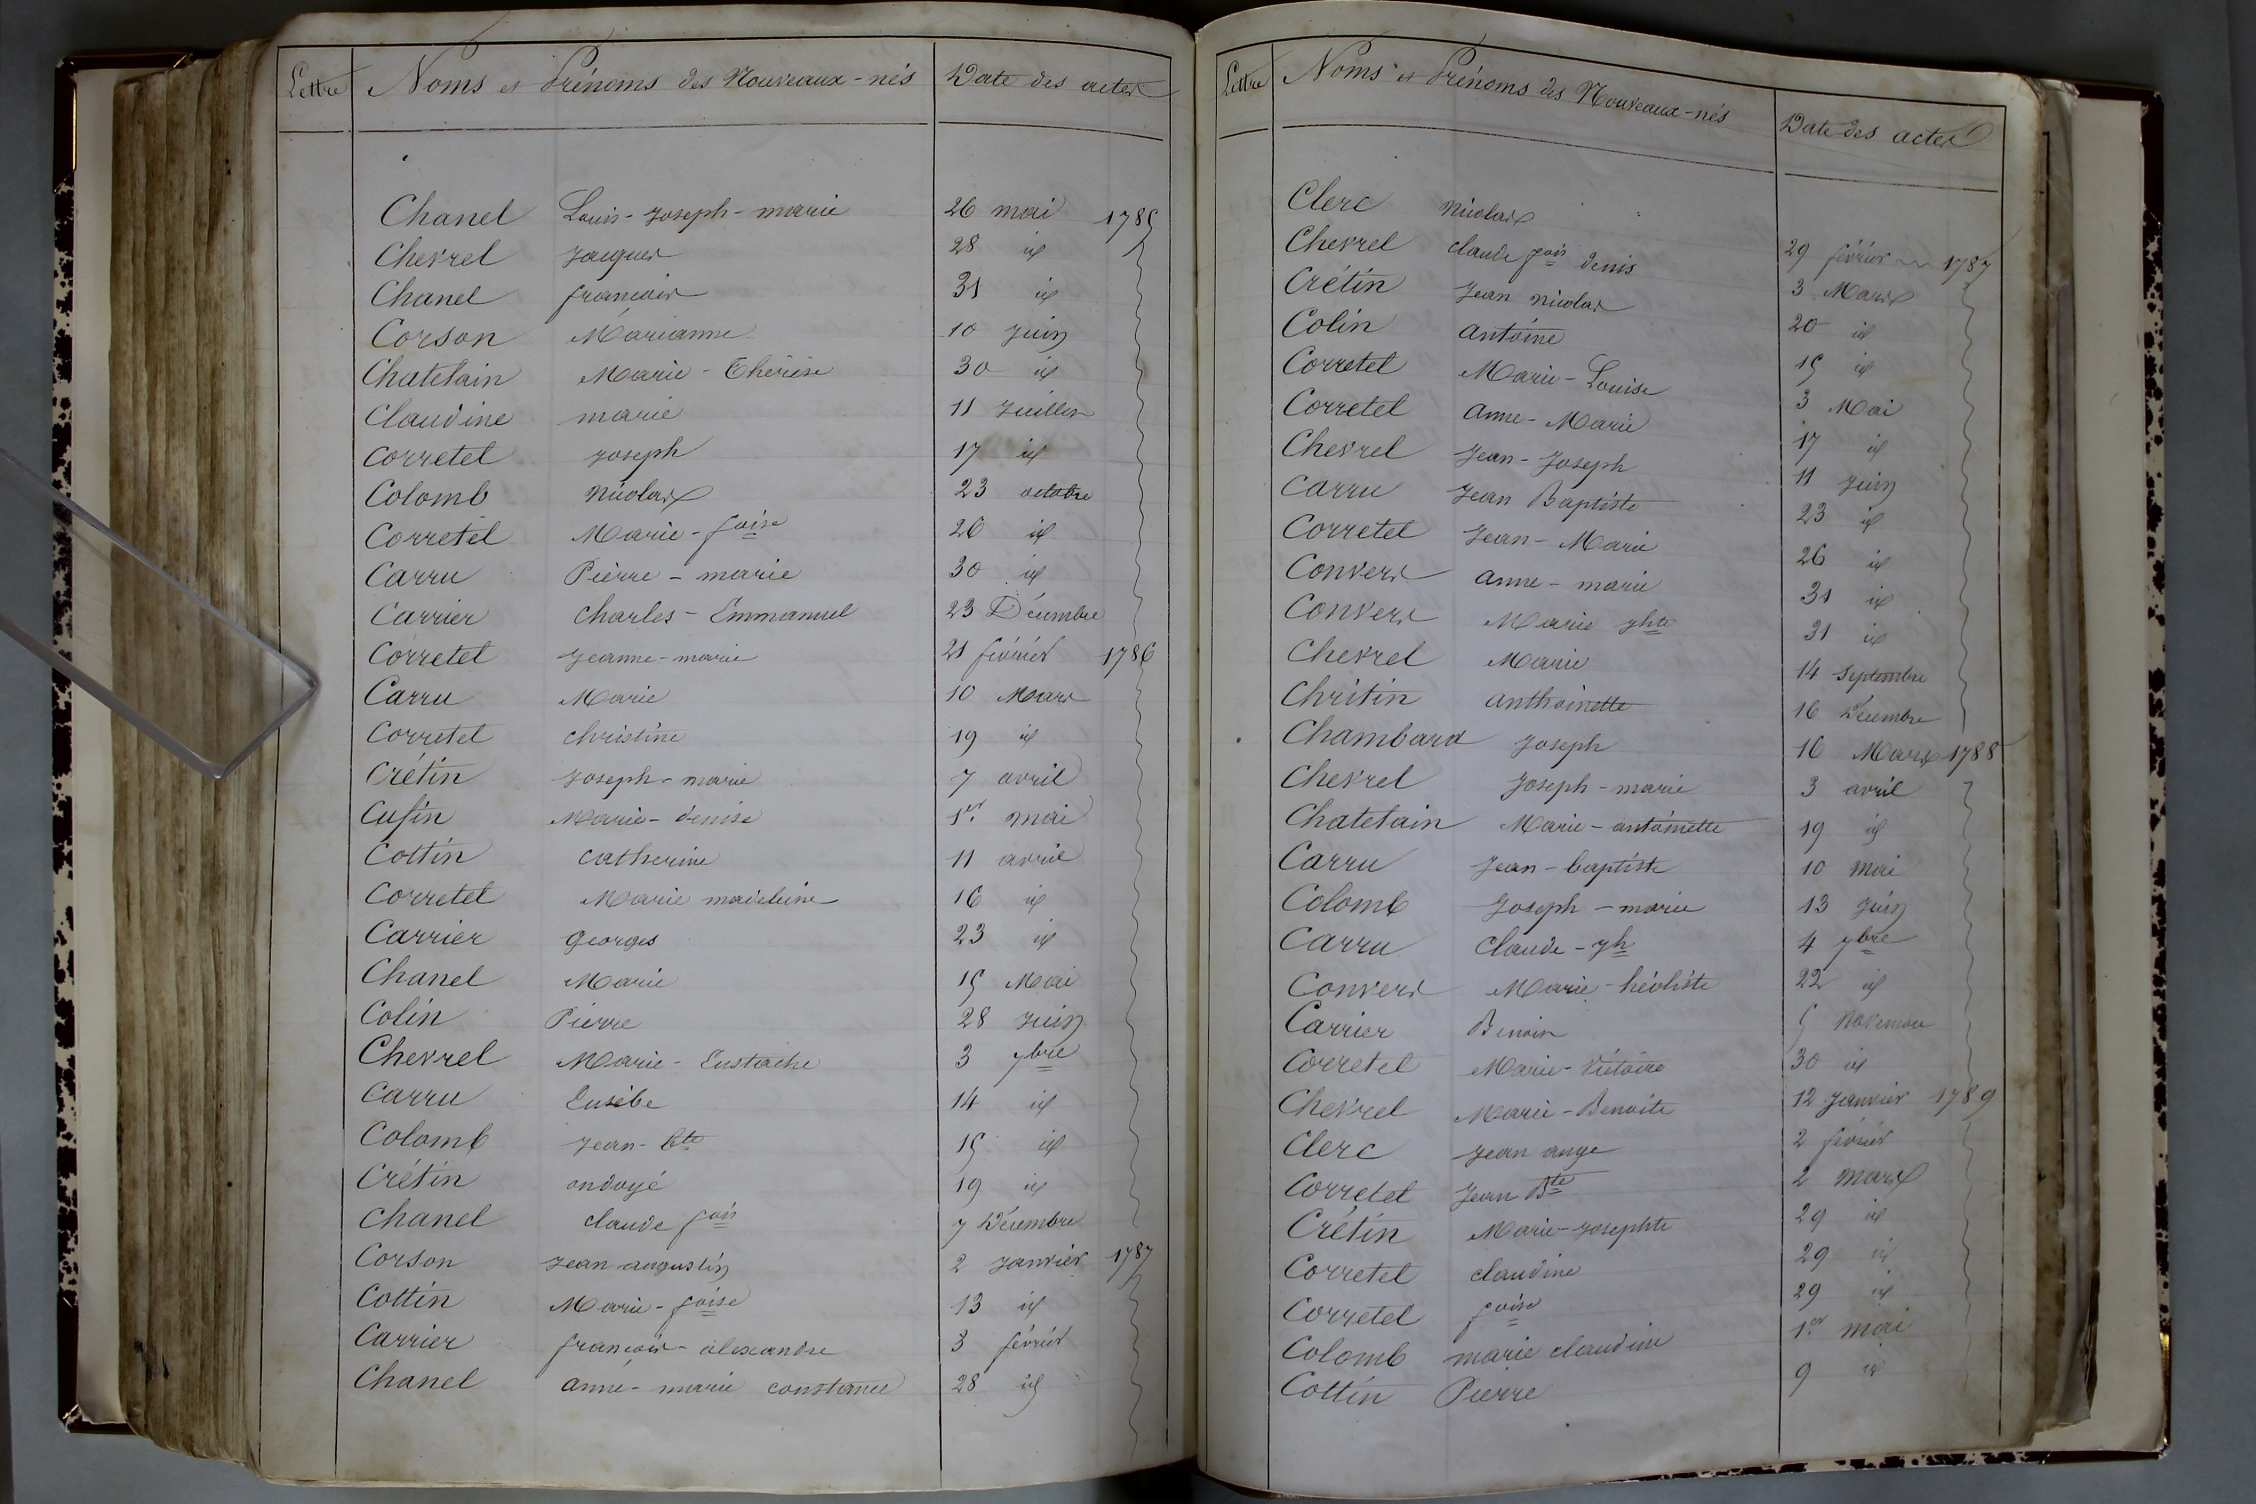 Lettre Noms et Prénoms des Nouveaux-nés Date des actes
Chanel Louis-Joseph-marie 26 mai 1785
Chevrel Jacques 28 id
Chanel françois 31 id
Corson Marianne 10 Juin
Chatelain Marie-Thérèse 30 id
Claudine marie 11 Juillet
Corretel Joseph 17 id
Colomb Nicolas 23 octobre
Corretel Marie-foise 26 id
Carru Pierre-marie 30 id
Carrier Charles-Emmanuel 23 Décembre
Corretel Jeanne-marie 21 février 1786
Carru Marie 10 Mars
Corretel christine 19 id
Crétin Joseph-marie 7 avril
Cusin Marie-denise 1er mai
Cottin catherine 11 avril
Corretel Marie madeleine 16 id
Carrier Georges 23 id
Chanel Marie 15 Mai
Colin Pierre 28 Juin
Chevrel Marie-Eustache 3 7bre
Carru Eusèbe 14 id
Colomb Jean-bte 15 id
Crétin ondoyé 19 id
Chanel claude fois 7 Décembre
Corson Jean augustin 2 Janvier 1787
Cottin Marie-foise 13 id
Carrier françois-alexandre 3 février
Chanel anne-marie constance 28 id
Lettre Noms et Prénoms des Nouveaux-nés Date des actes
Clerc Nicolas 29 février 1787
Chevrel claude fois denis 3 Mars
Crétin Jean Nicolas 20 id
Colin antoine 15 id
Corretel Marie-Louise 3 Mai
Corretel anne-Marie 17 id
Chevrel Jean-Joseph 11 Juin
Carru Jean Baptiste 23 id
Corretel Jean-Marie 26 id
Convers anne-marie 31 id
Convers Marie jhte 31 id
Chevrel Marie 14 Septembre
Christin anthoinette 16 Décembre
Chambard Joseph 16 Mars 1788
Chevrel Joseph-marie 3 avril
Chatelain Marie-antoinette 19 id
Carru Jean-baptiste 10 Mai
Colomb Joseph-marie 13 Juin
Carru Claude-jh 4 7bre
Convers Marie 22 id
Carrier Benoit 5 Novembre
Corretel Marie-Victoire 30 id
Chevrel Marie-Benoite 12 Janvier 1789
Clerc Jean ange 2 février
Corretel Jean Bte 2 mars
Crétin Marie-Josephte 29 id
Corretel claudine 29 id
Corretel foise 29 id
Colomb marie claudine 1er mai
Cottin Pierre 9 id